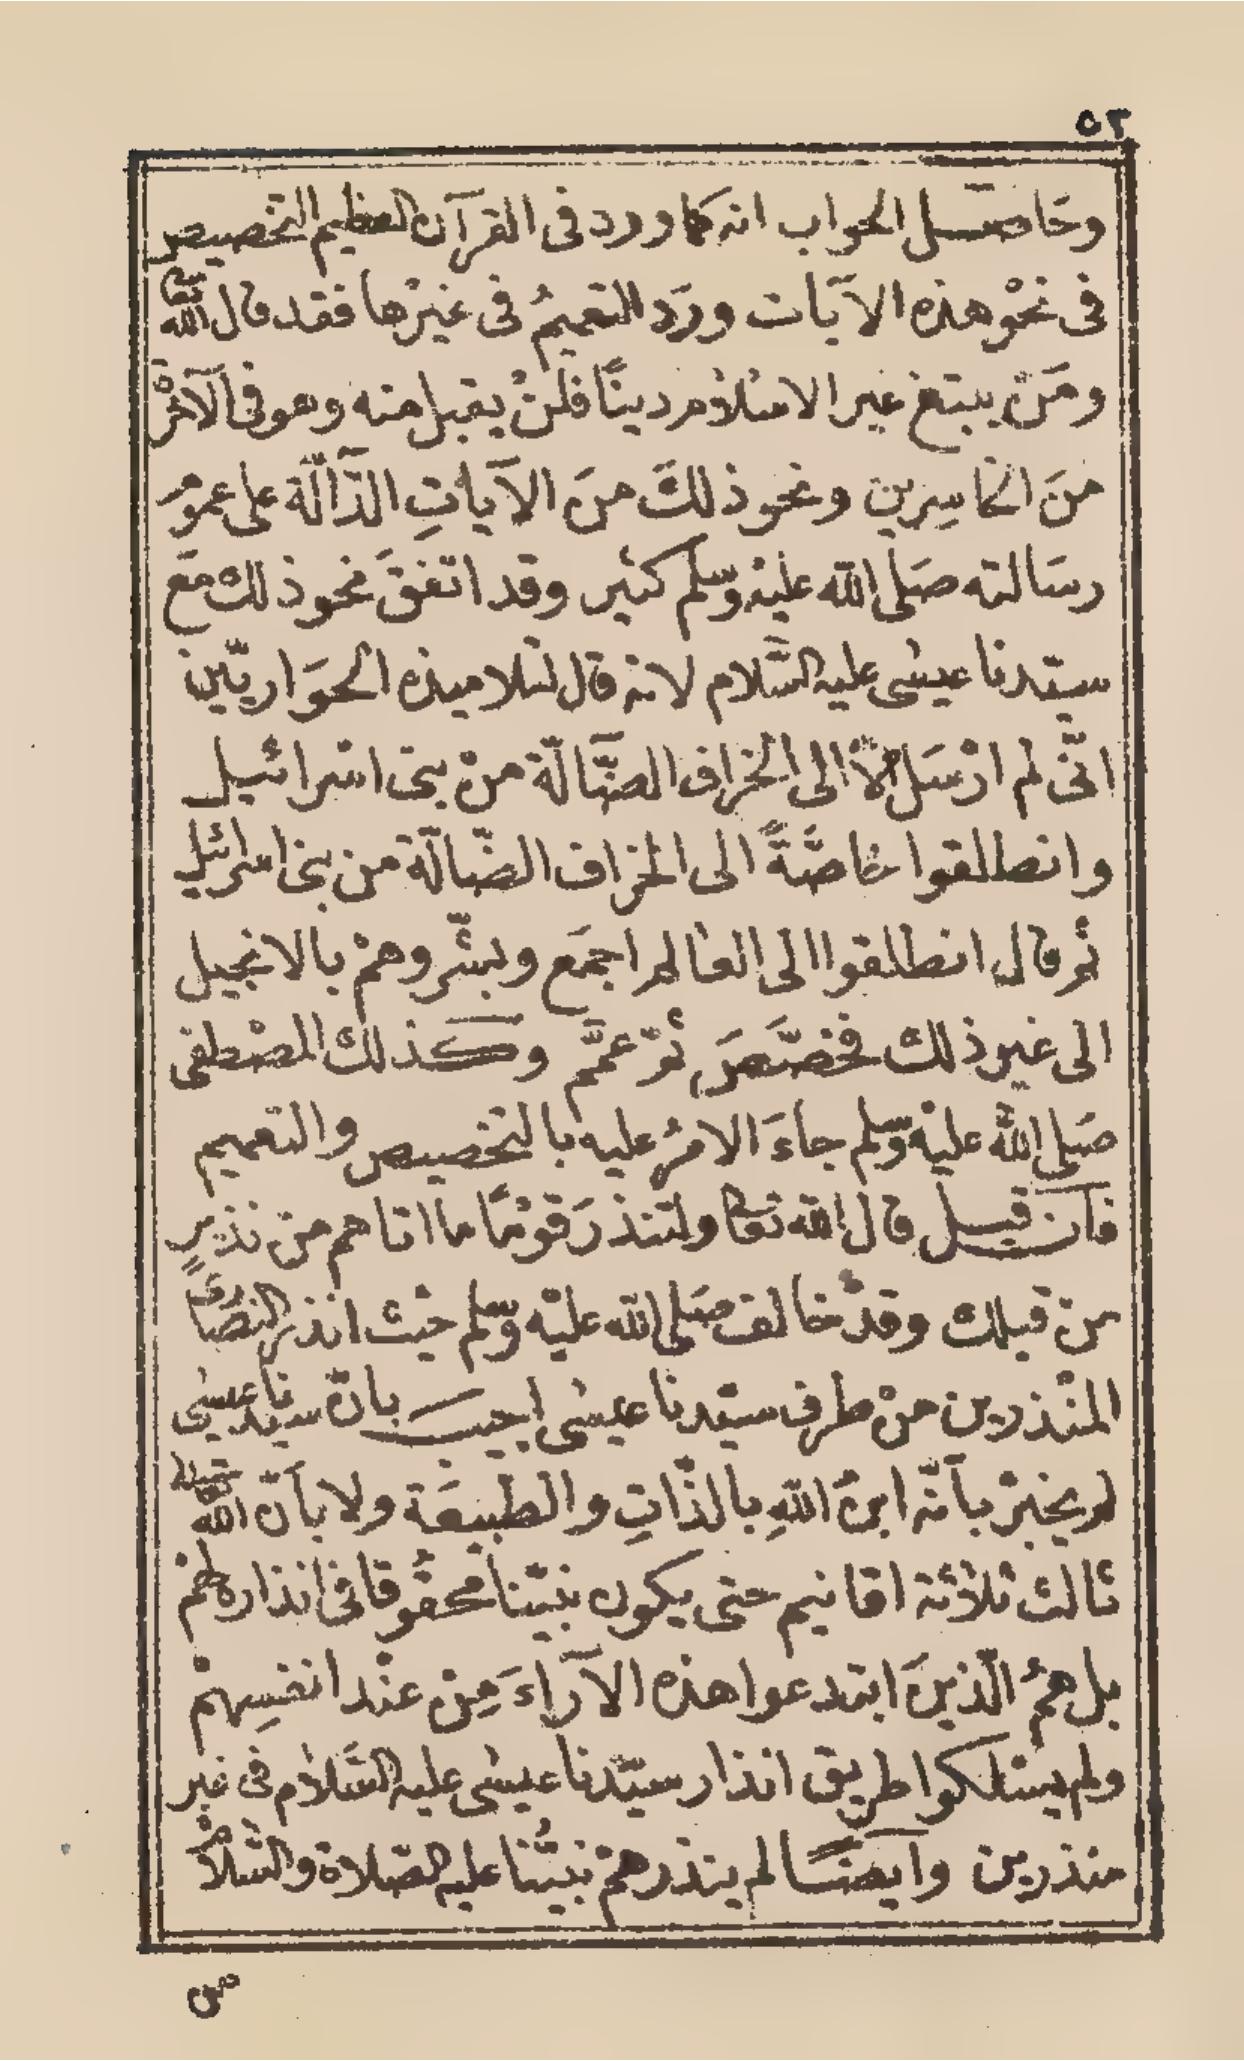 ٥٢
وحَاصل الجواب انه كما ورد فى القرآن العظيم التخصيص
فى نحْو هذه الآيَات ورَد التعميمُ فى غيرْها فقد قال الله تعالى
ومَنْ يبتغ غير الاسْلام دينًا فلنْ يقبل منه وهو فى الآخرْة
منَ الخاسِرين ونحوذلكَ منَ الآياتِ الدَّالّة على عمومْ
رسَالته صَلى الله عليْه وسّلم كثير وقد اتفقَ نحوذلك مَع
سيّدنا عيسٰى عليه السَّلام لانه قال لتلاميذه الحوَاريّين
انّى لم ارْسَل الاَّ الى الخراف الضَّالّة منْ بنى اسْرائيل
وانطلقوا خاصَّةً الى الخراف الضّالّة من بنى اسرائيل
ثم قال انطلقوا الى العالم اجمَع وبشّروهمْ بالانجيل
الى غير ذلك فخصَّصَ ثمّ عمَّم وكذلك المصْطفى
صَلى الله عليْه وسّلم جاءَ الامرُ عليه بالتخصيص والتعميم
فان قيل قال الله تعالى ولتنذرَ قوْمًا ما اتاهم من نذيرٍ
من قبلك وقدْ خالف صَلى الله عليْه وسّلم حيْث انذر النصَارى
المنْذرين منْ طرف سيّدنا عيسٰى اجيب بانّ سيدنا عيسٰى
لم يخبرْ بأنّه ابنُ اللهِ بالذّاتِ والطبيعَة ولا بأنّ الله تعالى
ثالث ثلاثة اقانيم حتى يكون نبيّنا محقُوقا فى انذاره لهمْ
بل همُ الّذينَ ابتدعوا هذه الآراءَ مِنْ عنْد انفسِهمْ
ولم يسْلكوا طريق انذار سيّدنا عيسٰى عليه السَّلام فى غير
منذرين وايضًا لم ينذرهمْ نبيُّنا عليه الصّلاة والسَّلامُ
من